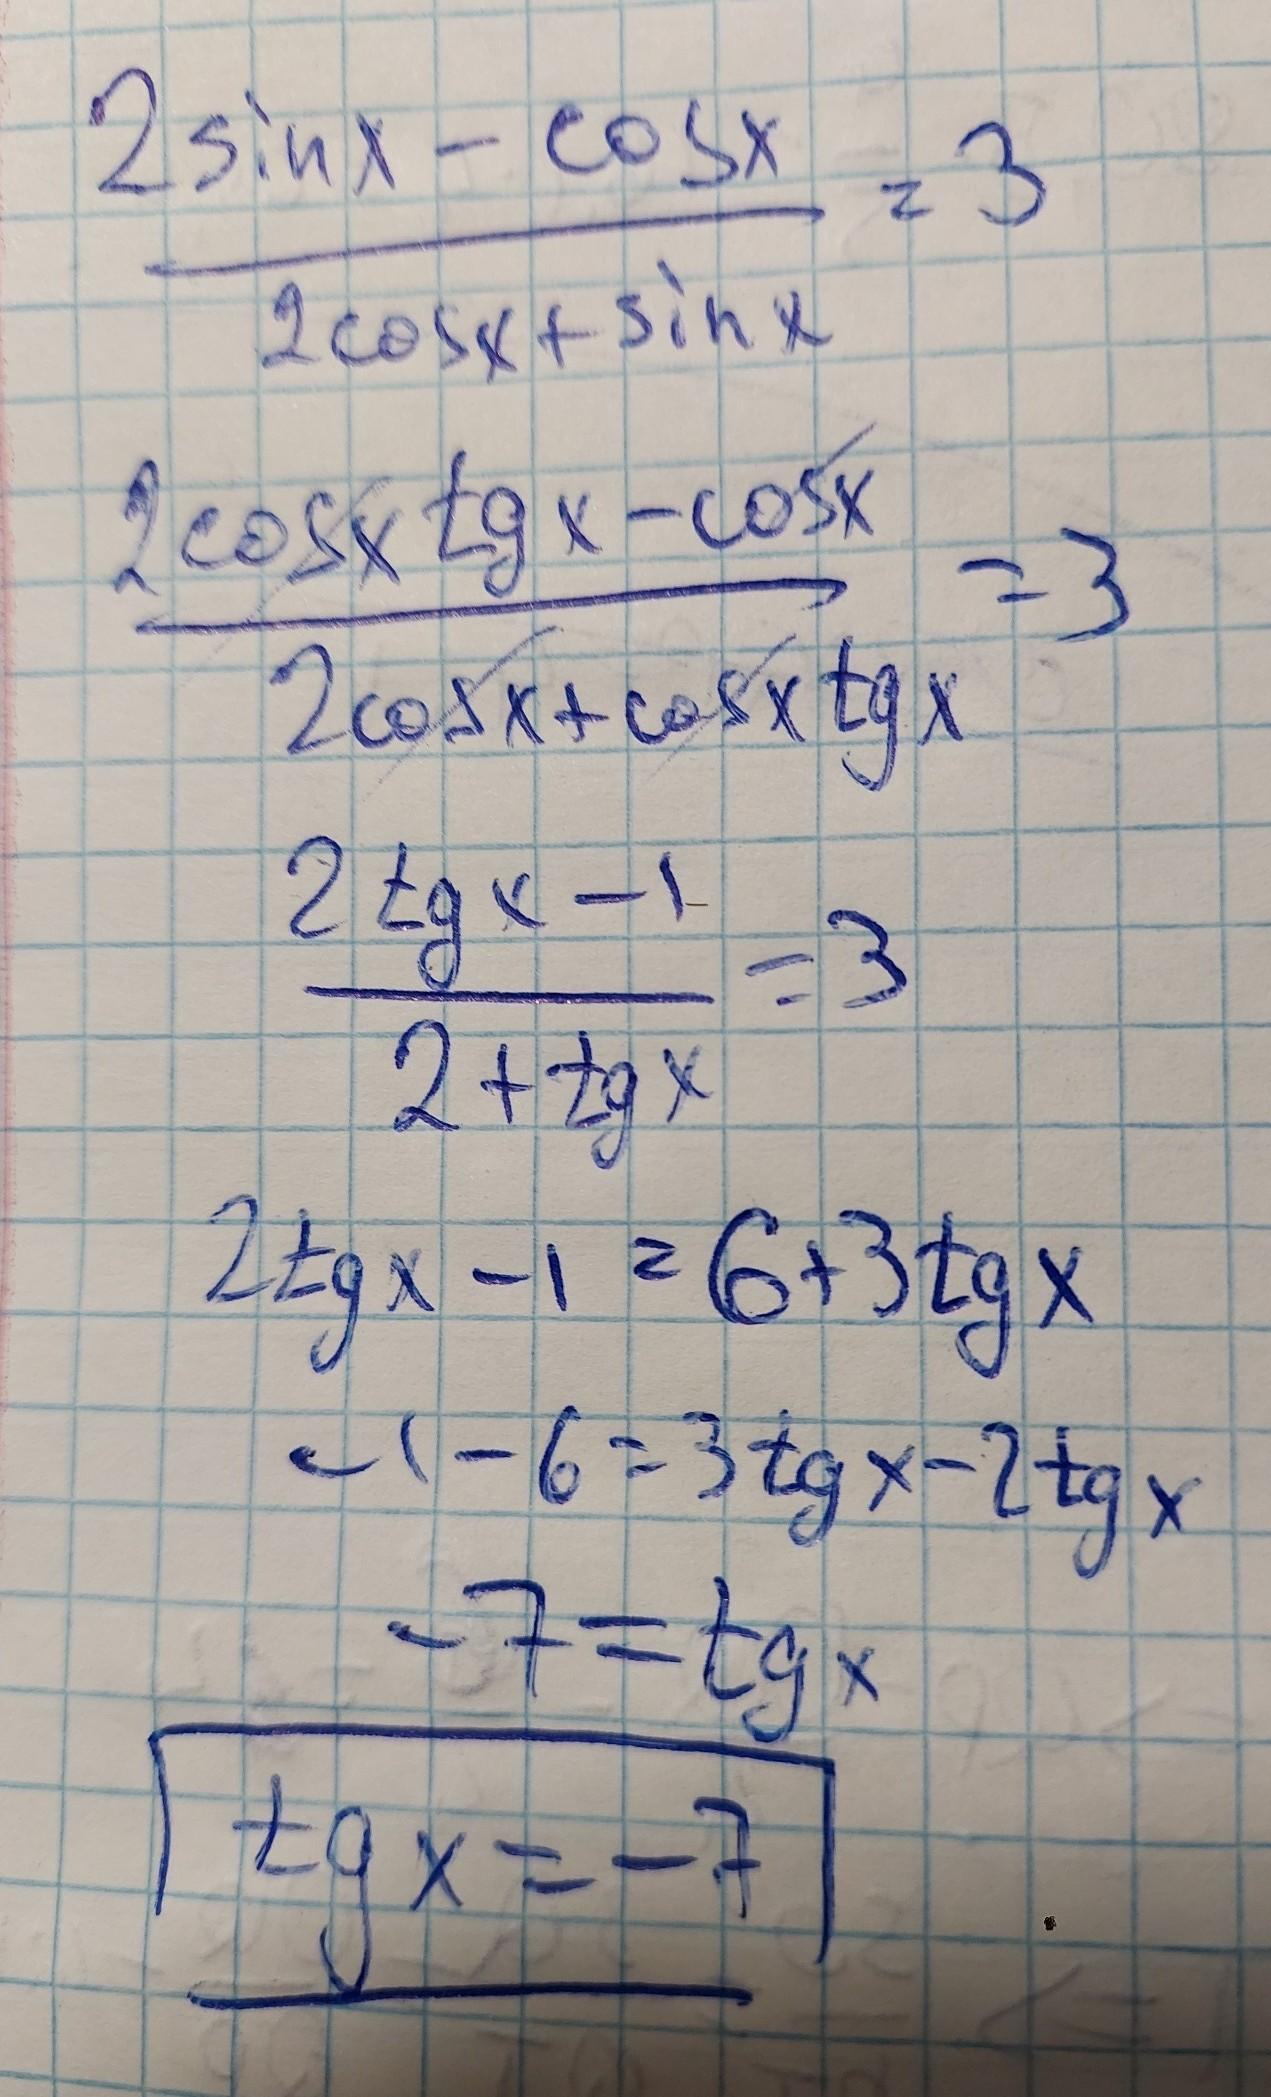 2sinx - cosx / 2cosx + sinx = 3
2cosx tgx - cosx / 2cosx + cosx tgx = 3
2tgx - 1 / 2 + tgx = 3
2tgx - 1 = 6 + 3tgx
-1 - 6 = 3tgx - 2tgx
-7 = tgx
tgx = -7